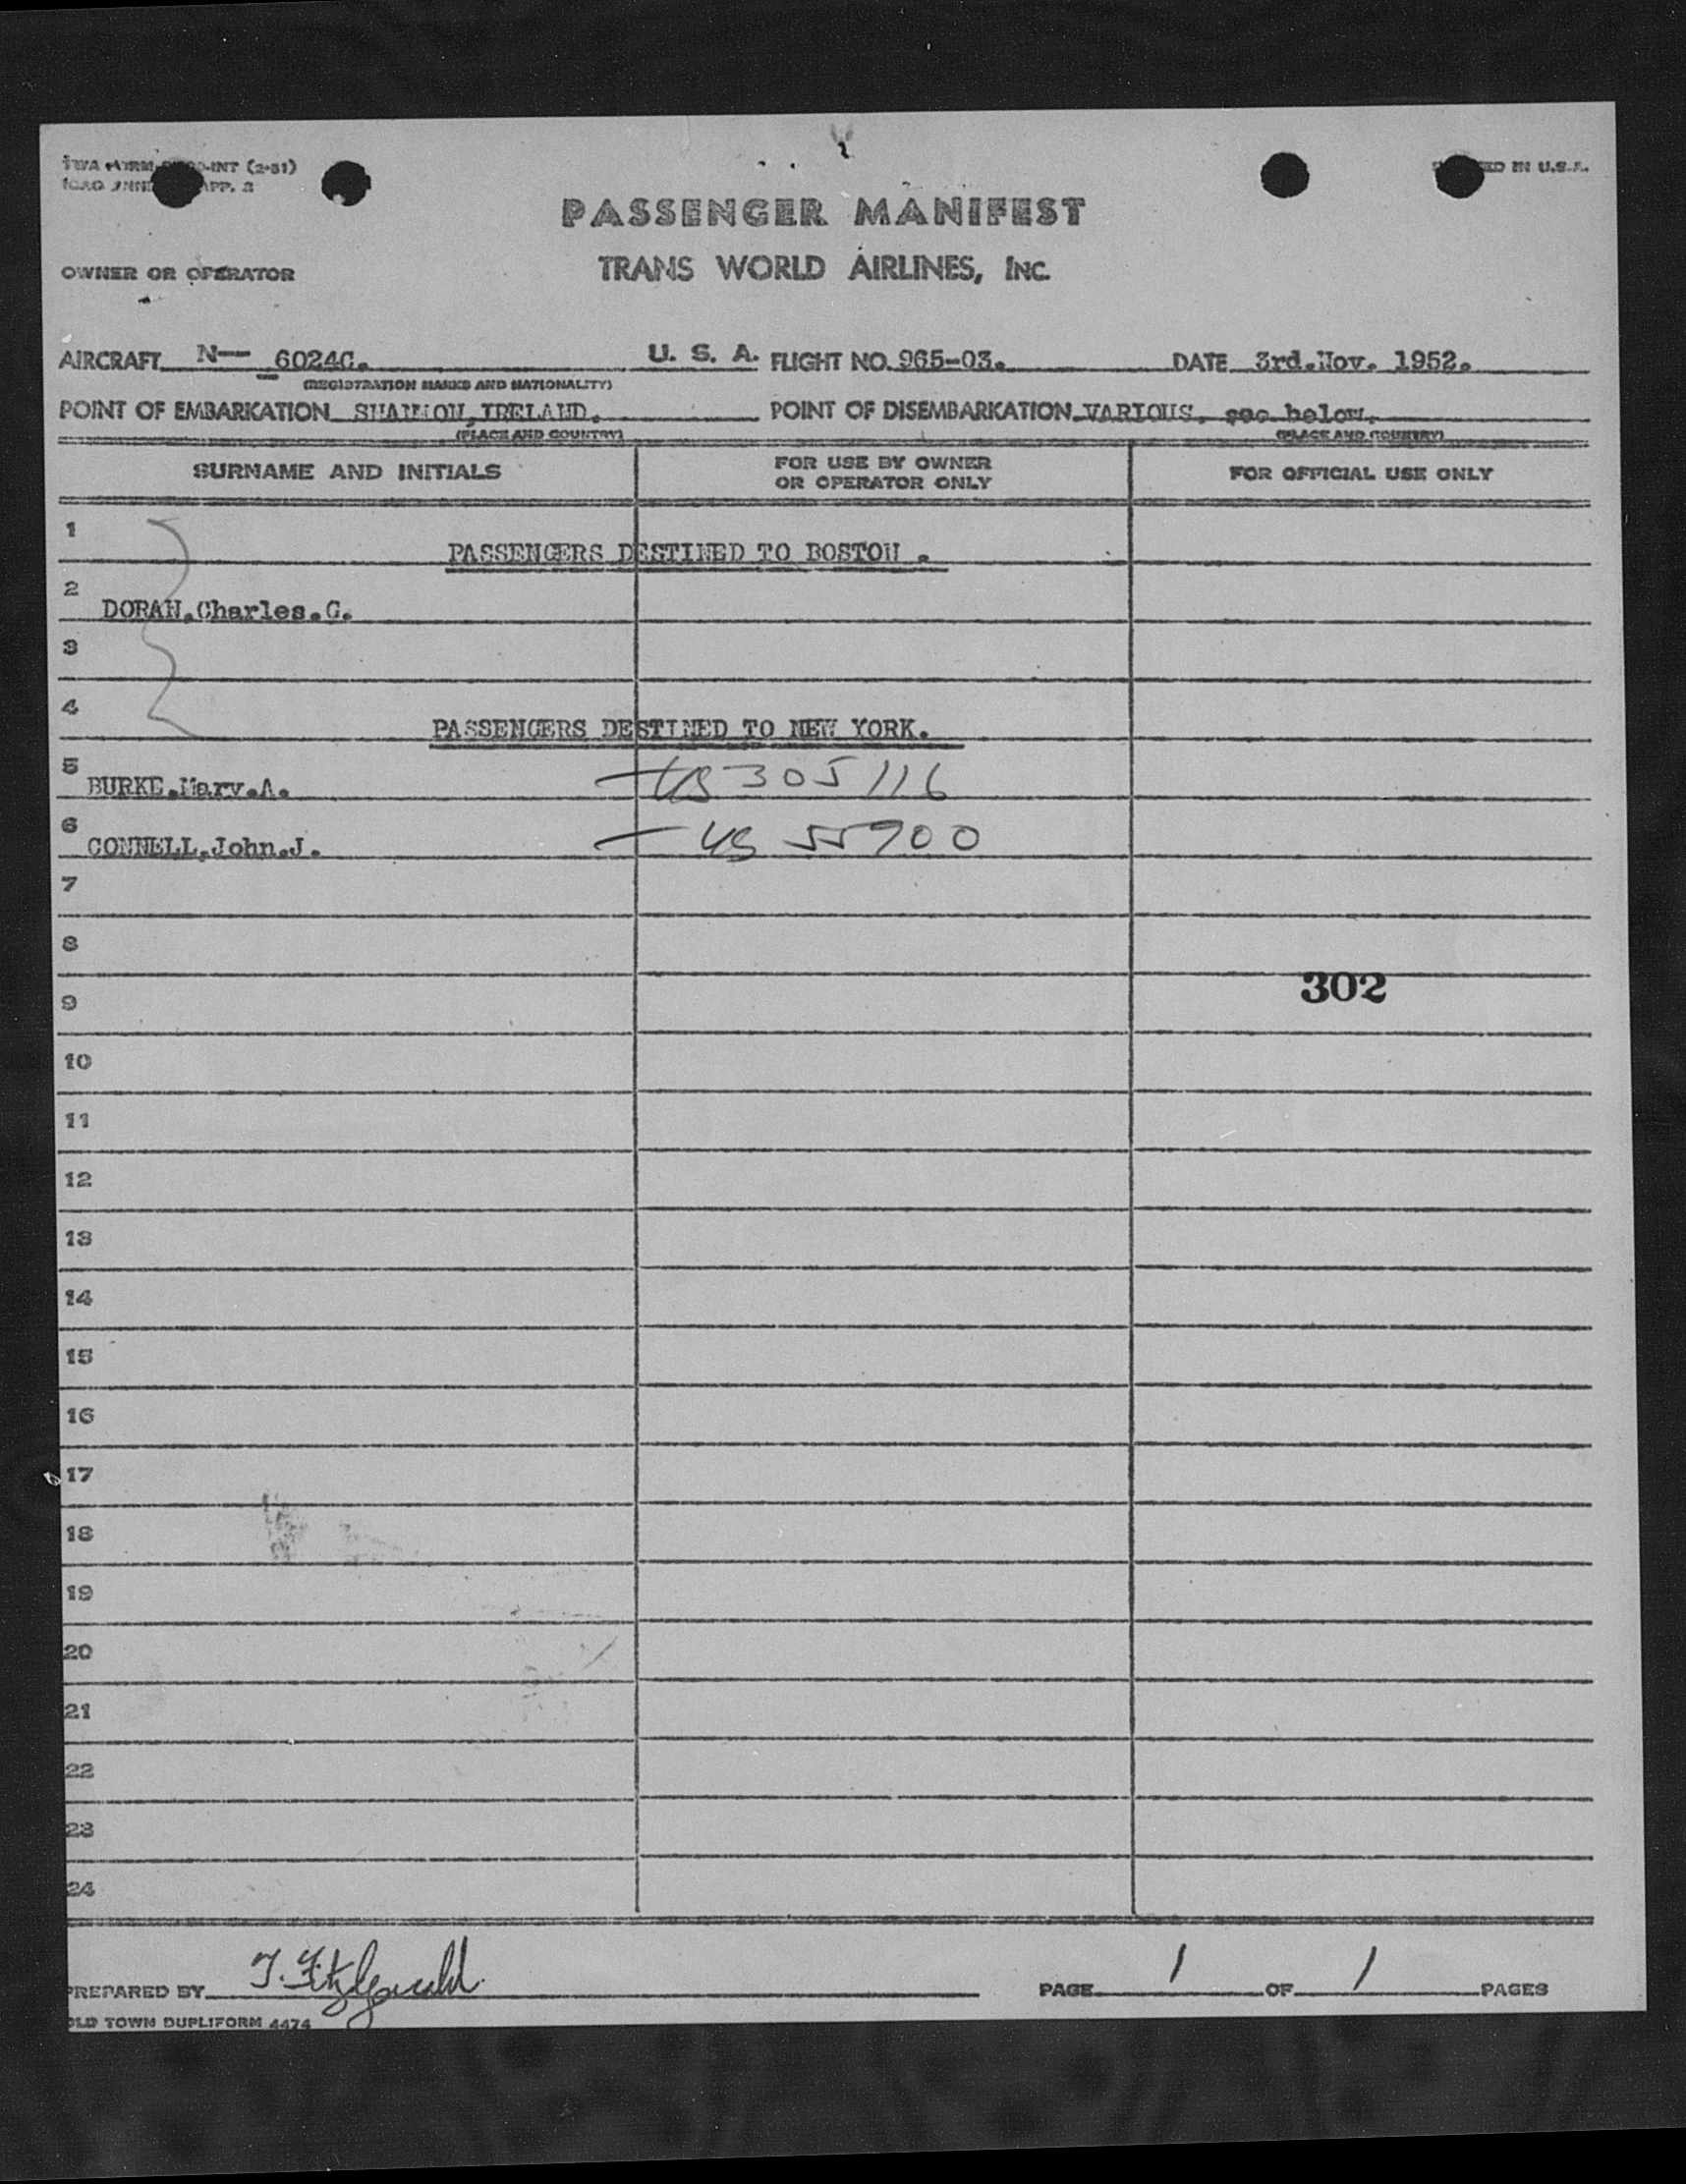 TWA FORM -INT (2-51)
ICAO ANNE APP. 2
ED IN U.S.A.
PASSENGER MANIFEST
OWNER OR OPERATOR
TRANS WORLD AIRLINES, INC.
AIRCRAFT N— 6024C. U. S. A. FLIGHT NO. 965-03. DATE 3rd.Nov. 1952.
(REGISTRATION MARKS AND NATIONALITY)
POINT OF EMBARKATION SHANNON,IRELAND. POINT OF DISEMBARKATION VARIOUS. see below.
(PLACE AND COUNTRY) (PLACE AND COUNTRY)
SURNAME AND INITIALS
FOR USE BY OWNER
OR OPERATOR ONLY
FOR OFFICIAL USE ONLY
1
PASSENGERS DESTINED TO BOSTON .
2
DORAN.Charles.C.
3
4
PASSENGERS DESTINED TO NEW YORK.
5
BURKE.Mary.A. US 305116
6
CONNELL.John.J. US 55900
7
8
302
9
10
11
12
13
14
15
16
17
18
19
20
21
22
23
24
PREPARED BY T. Fitzgerald PAGE 1 OF 1 PAGES
OLD TOWN DUPLIFORM 4474